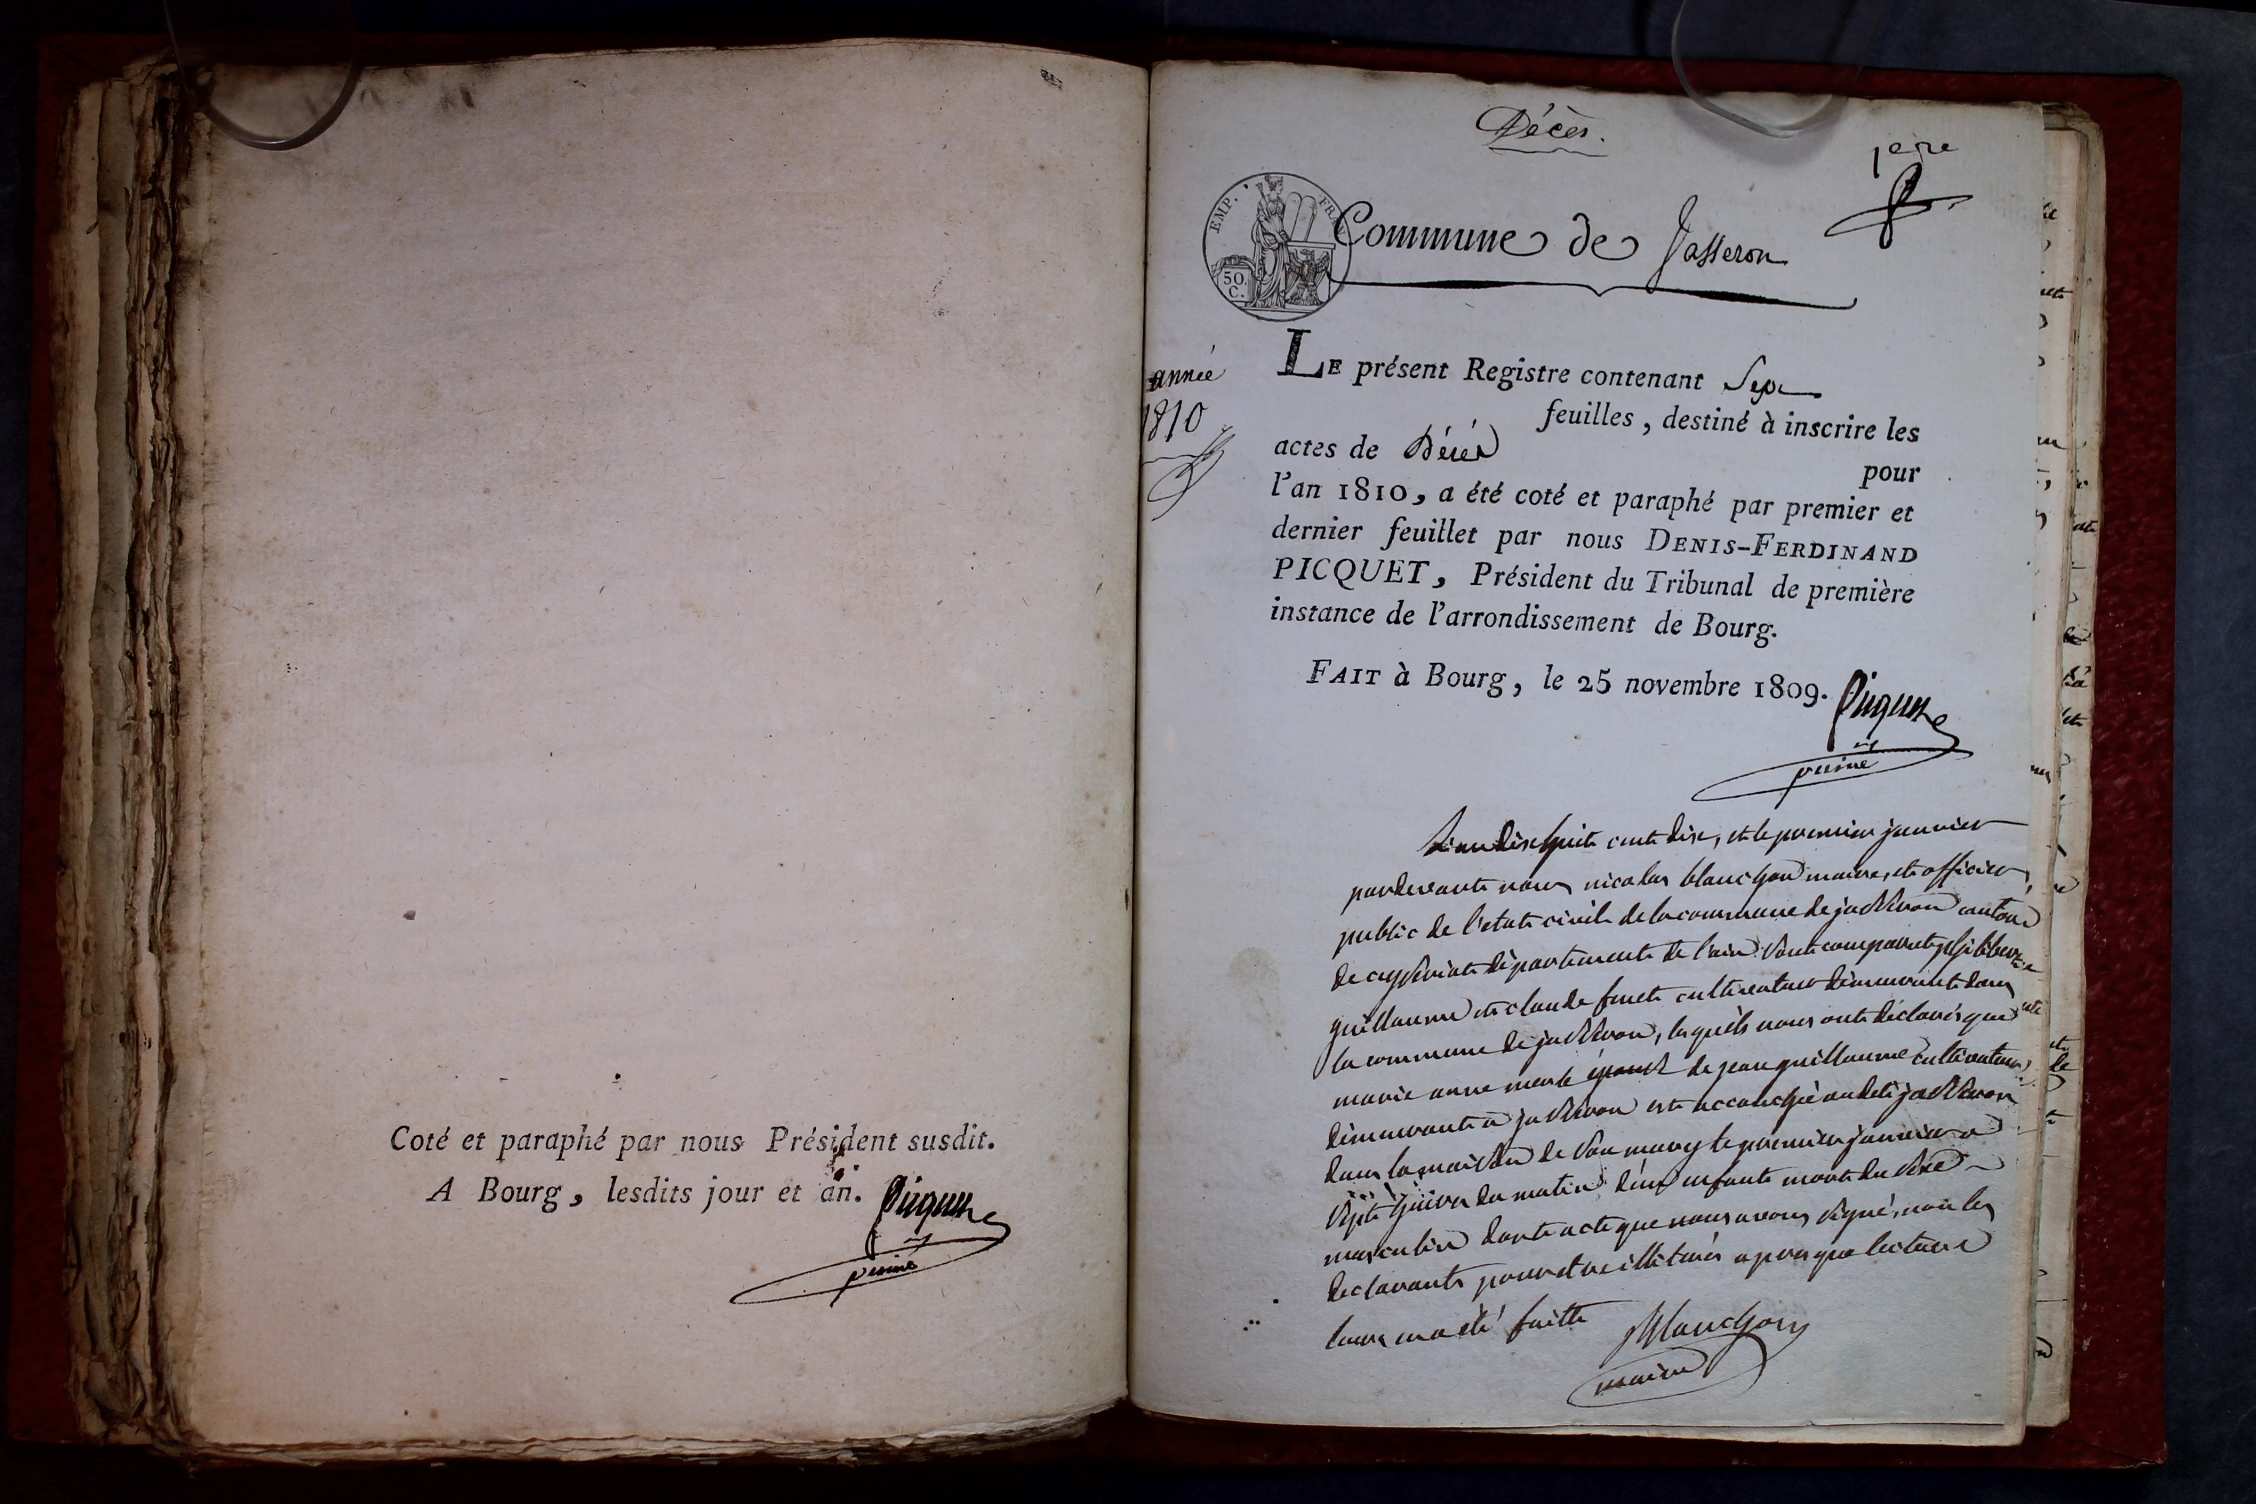 Coté et paraphé par nous Président susdit.
A Bourg, lesdits jour et an. Picquet
Décès.
1ere
EMP. FRA
50.
C.
Commune de Jasseron
année
1810
LE présent Registre contenant Sept
feuilles, destiné à inscrire les
actes de Décès
pour
l'an 1810, a été coté et paraphé par premier et
dernier feuillet par nous DENIS-FERDINAND
PICQUET, Président du Tribunal de première
instance de l'arrondissement de Bourg.
FAIT à Bourg, le 25 novembre 1809. Picquet
L'an dixhuit cent dix, et le premier janvier
pardevant nous nicolas blanchon maire, et officier
public de l'etat civil de la commune de jasseron canton
de ceyseriat département de l'ain sont comparut philibert
guillaume et claude furet cultivateur démeurant dans
la commune de jasseron, lesquels nous ont déclarés que
marie anne épouse de jean guillaume cultivateur
démeurant a jasseron est accouchée audit jasseron
dans la maison de son mary le premier janvier a
sept heures du matin d'un enfant mort du sexe
masculin dont acte que nous avons signé, non les
declarants pour etre illiturés apres que lecture
leur en a été faitte Blanchon
maire